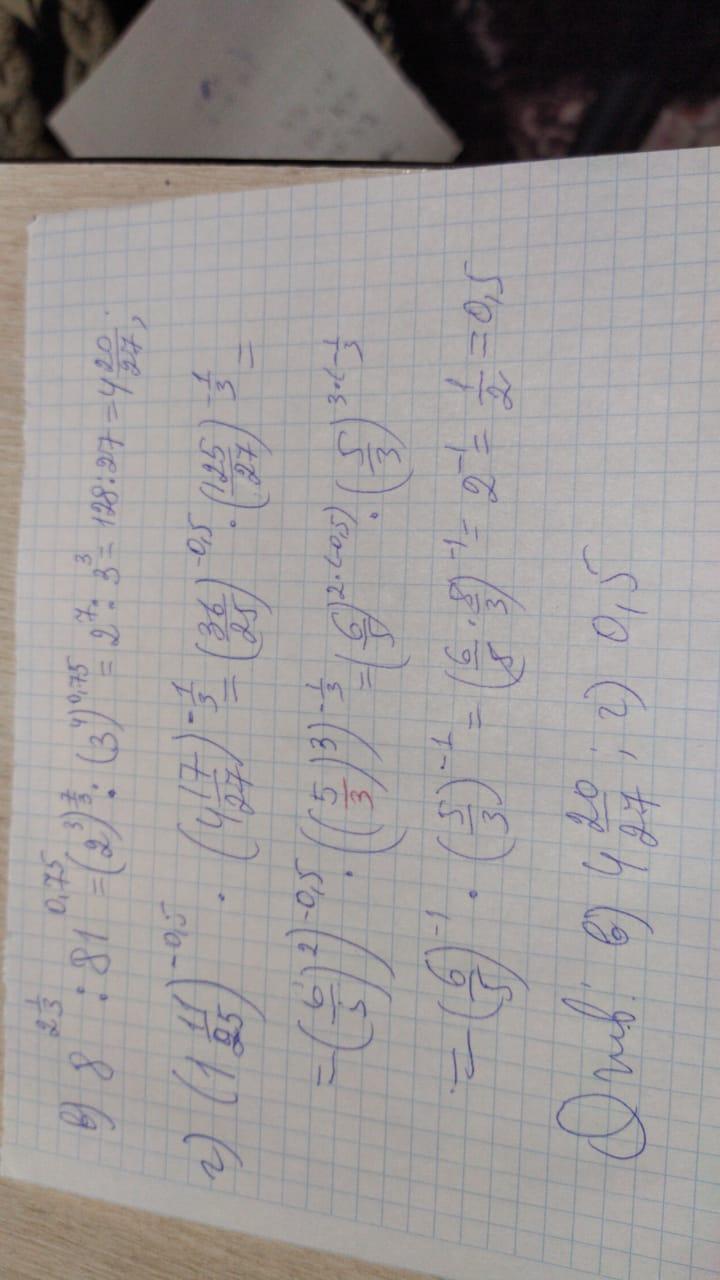 в) 8^{2\frac{1}{3}} : 81^{0,75} = (2^3)^{\frac{7}{3}} : (3^4)^{0,75} = 2^7 : 3^3 = 128:27 = 4\frac{20}{27};
г) (1\frac{11}{25})^{-0,5} · (4\frac{17}{27})^{-\frac{1}{3}} = (\frac{36}{25})^{-0,5} · (\frac{125}{27})^{-\frac{1}{3}} =
= ((\frac{6}{5})^2)^{-0,5} · ((\frac{5}{3})^3)^{-\frac{1}{3}} = (\frac{6}{5})^{2·(-0,5)} · (\frac{5}{3})^{3·(-\frac{1}{3}}
= (\frac{6}{5})^{-1} · (\frac{5}{3})^{-1} = (\frac{6}{5} · \frac{5}{3})^{-1} = 2^{-1} = \frac{1}{2} = 0,5
Отв: в) 4\frac{20}{27}; г) 0,5